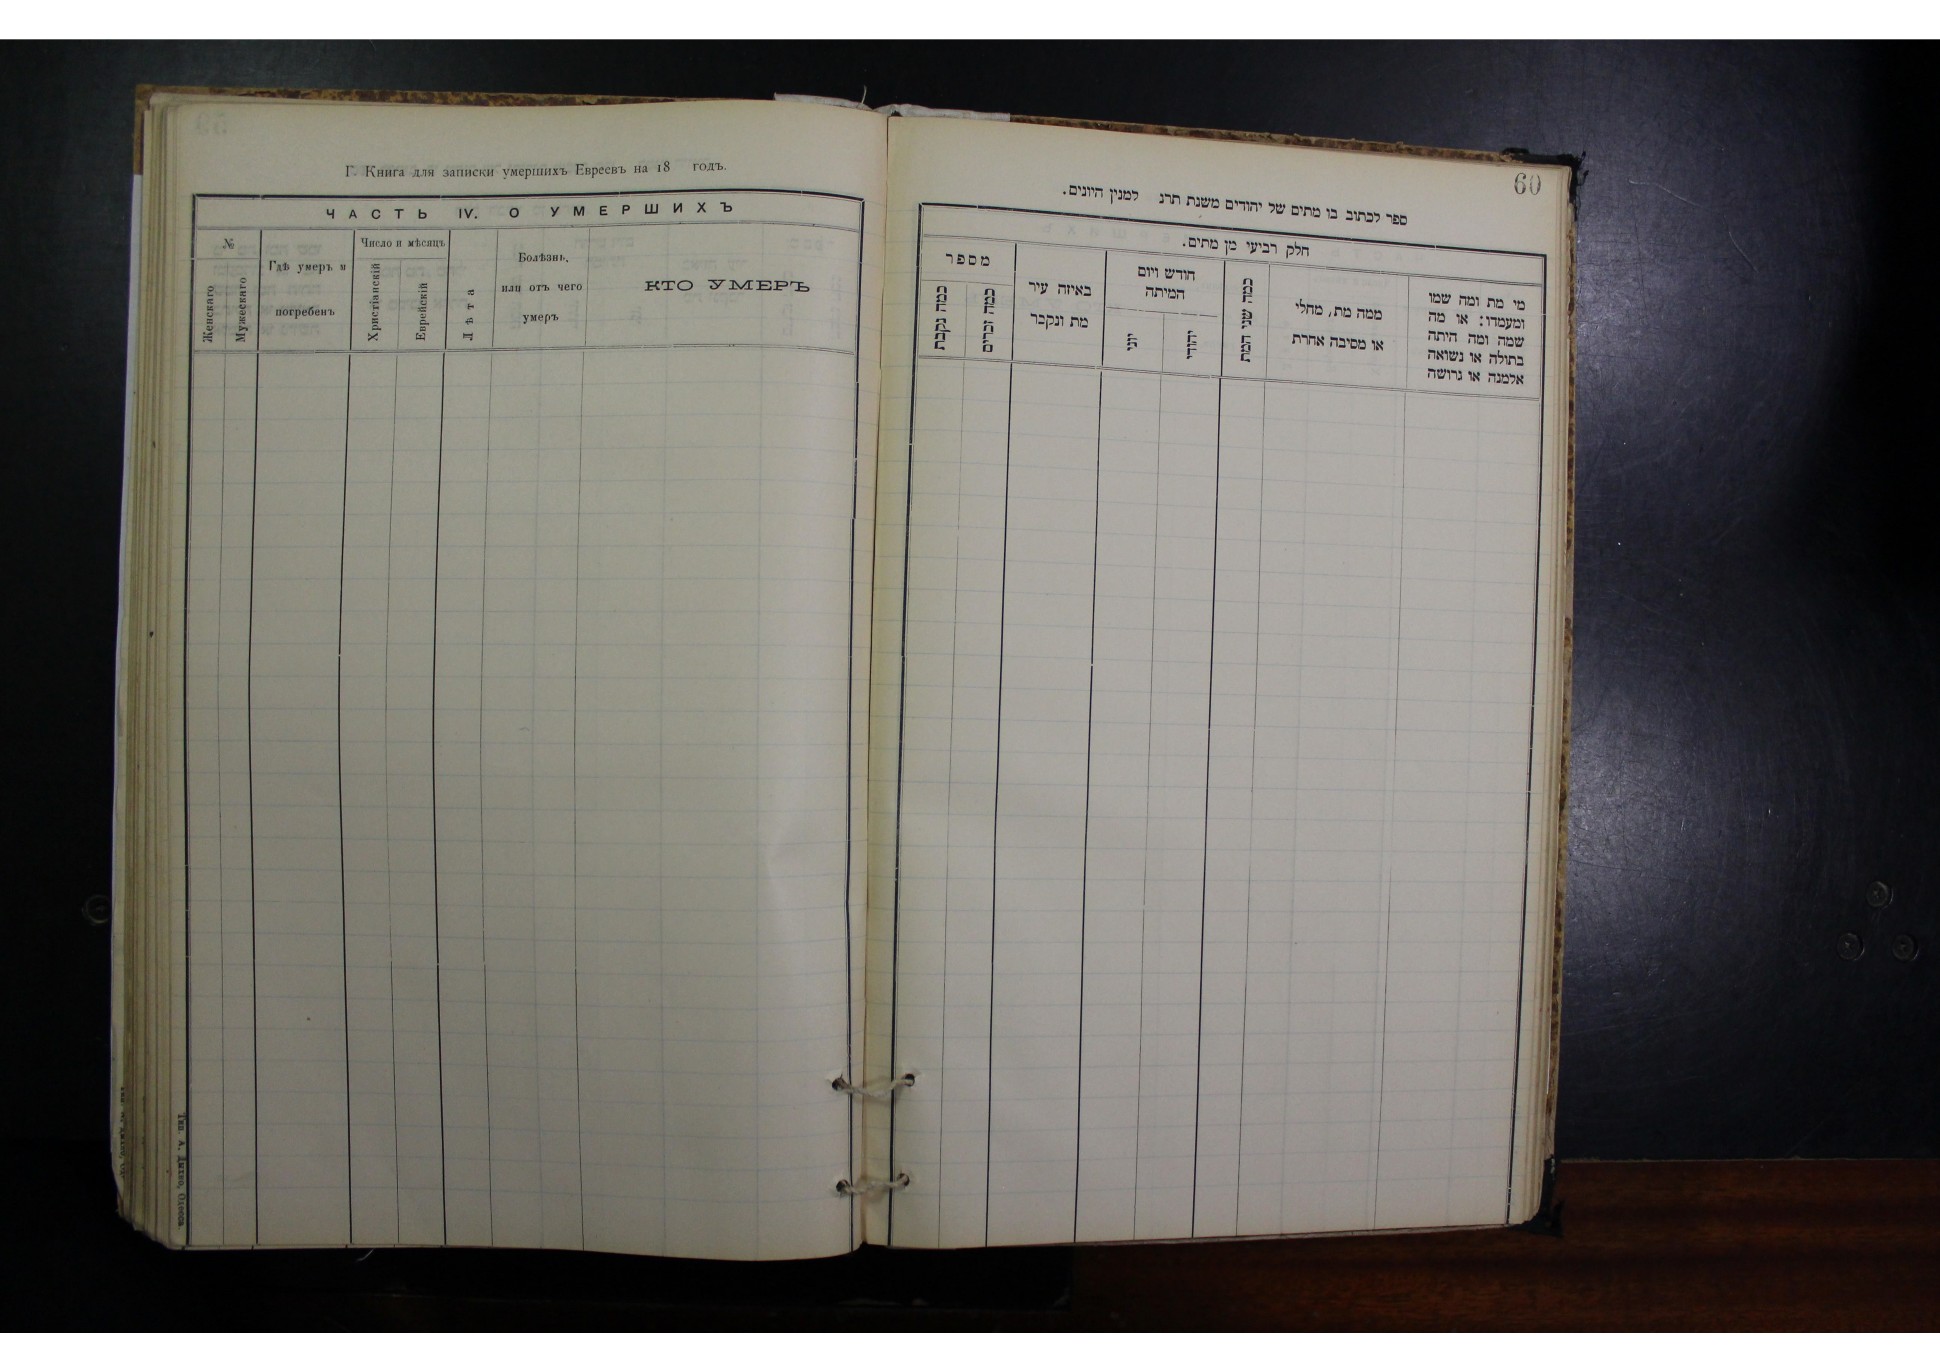 Г. Книга для записки умершихъ Евреевъ на 18 годъ.
ЧАСТЬ IV. О УМЕРШИХЪ
№
Женскаго
Мужескаго
Гдѣ умеръ и
погребенъ
Число и мѣсяцъ
Христіанскій
Еврейскій
Лѣта
Болѣзнь,
или отъ чего
умеръ
КТО УМЕРЪ
Тип. А. Одесса.
60
ספר לכתוב בו מתים של יהודים משנת תרנ למנין היונים.
חלק רביעי מן מתים.
מספר
כמה נקבת
כמה זכרים
באיזה עיר
מת ונקבר
חודש ויום
המיתה
יוני
יהודי
כמה שני המת
ממה מת, מחלי
או מסיבה אחרת
מי מת ומה שמו
ומעמדו: או מה
שמה ומה היתה
בתולה או נשואה
אלמנה או גרושה